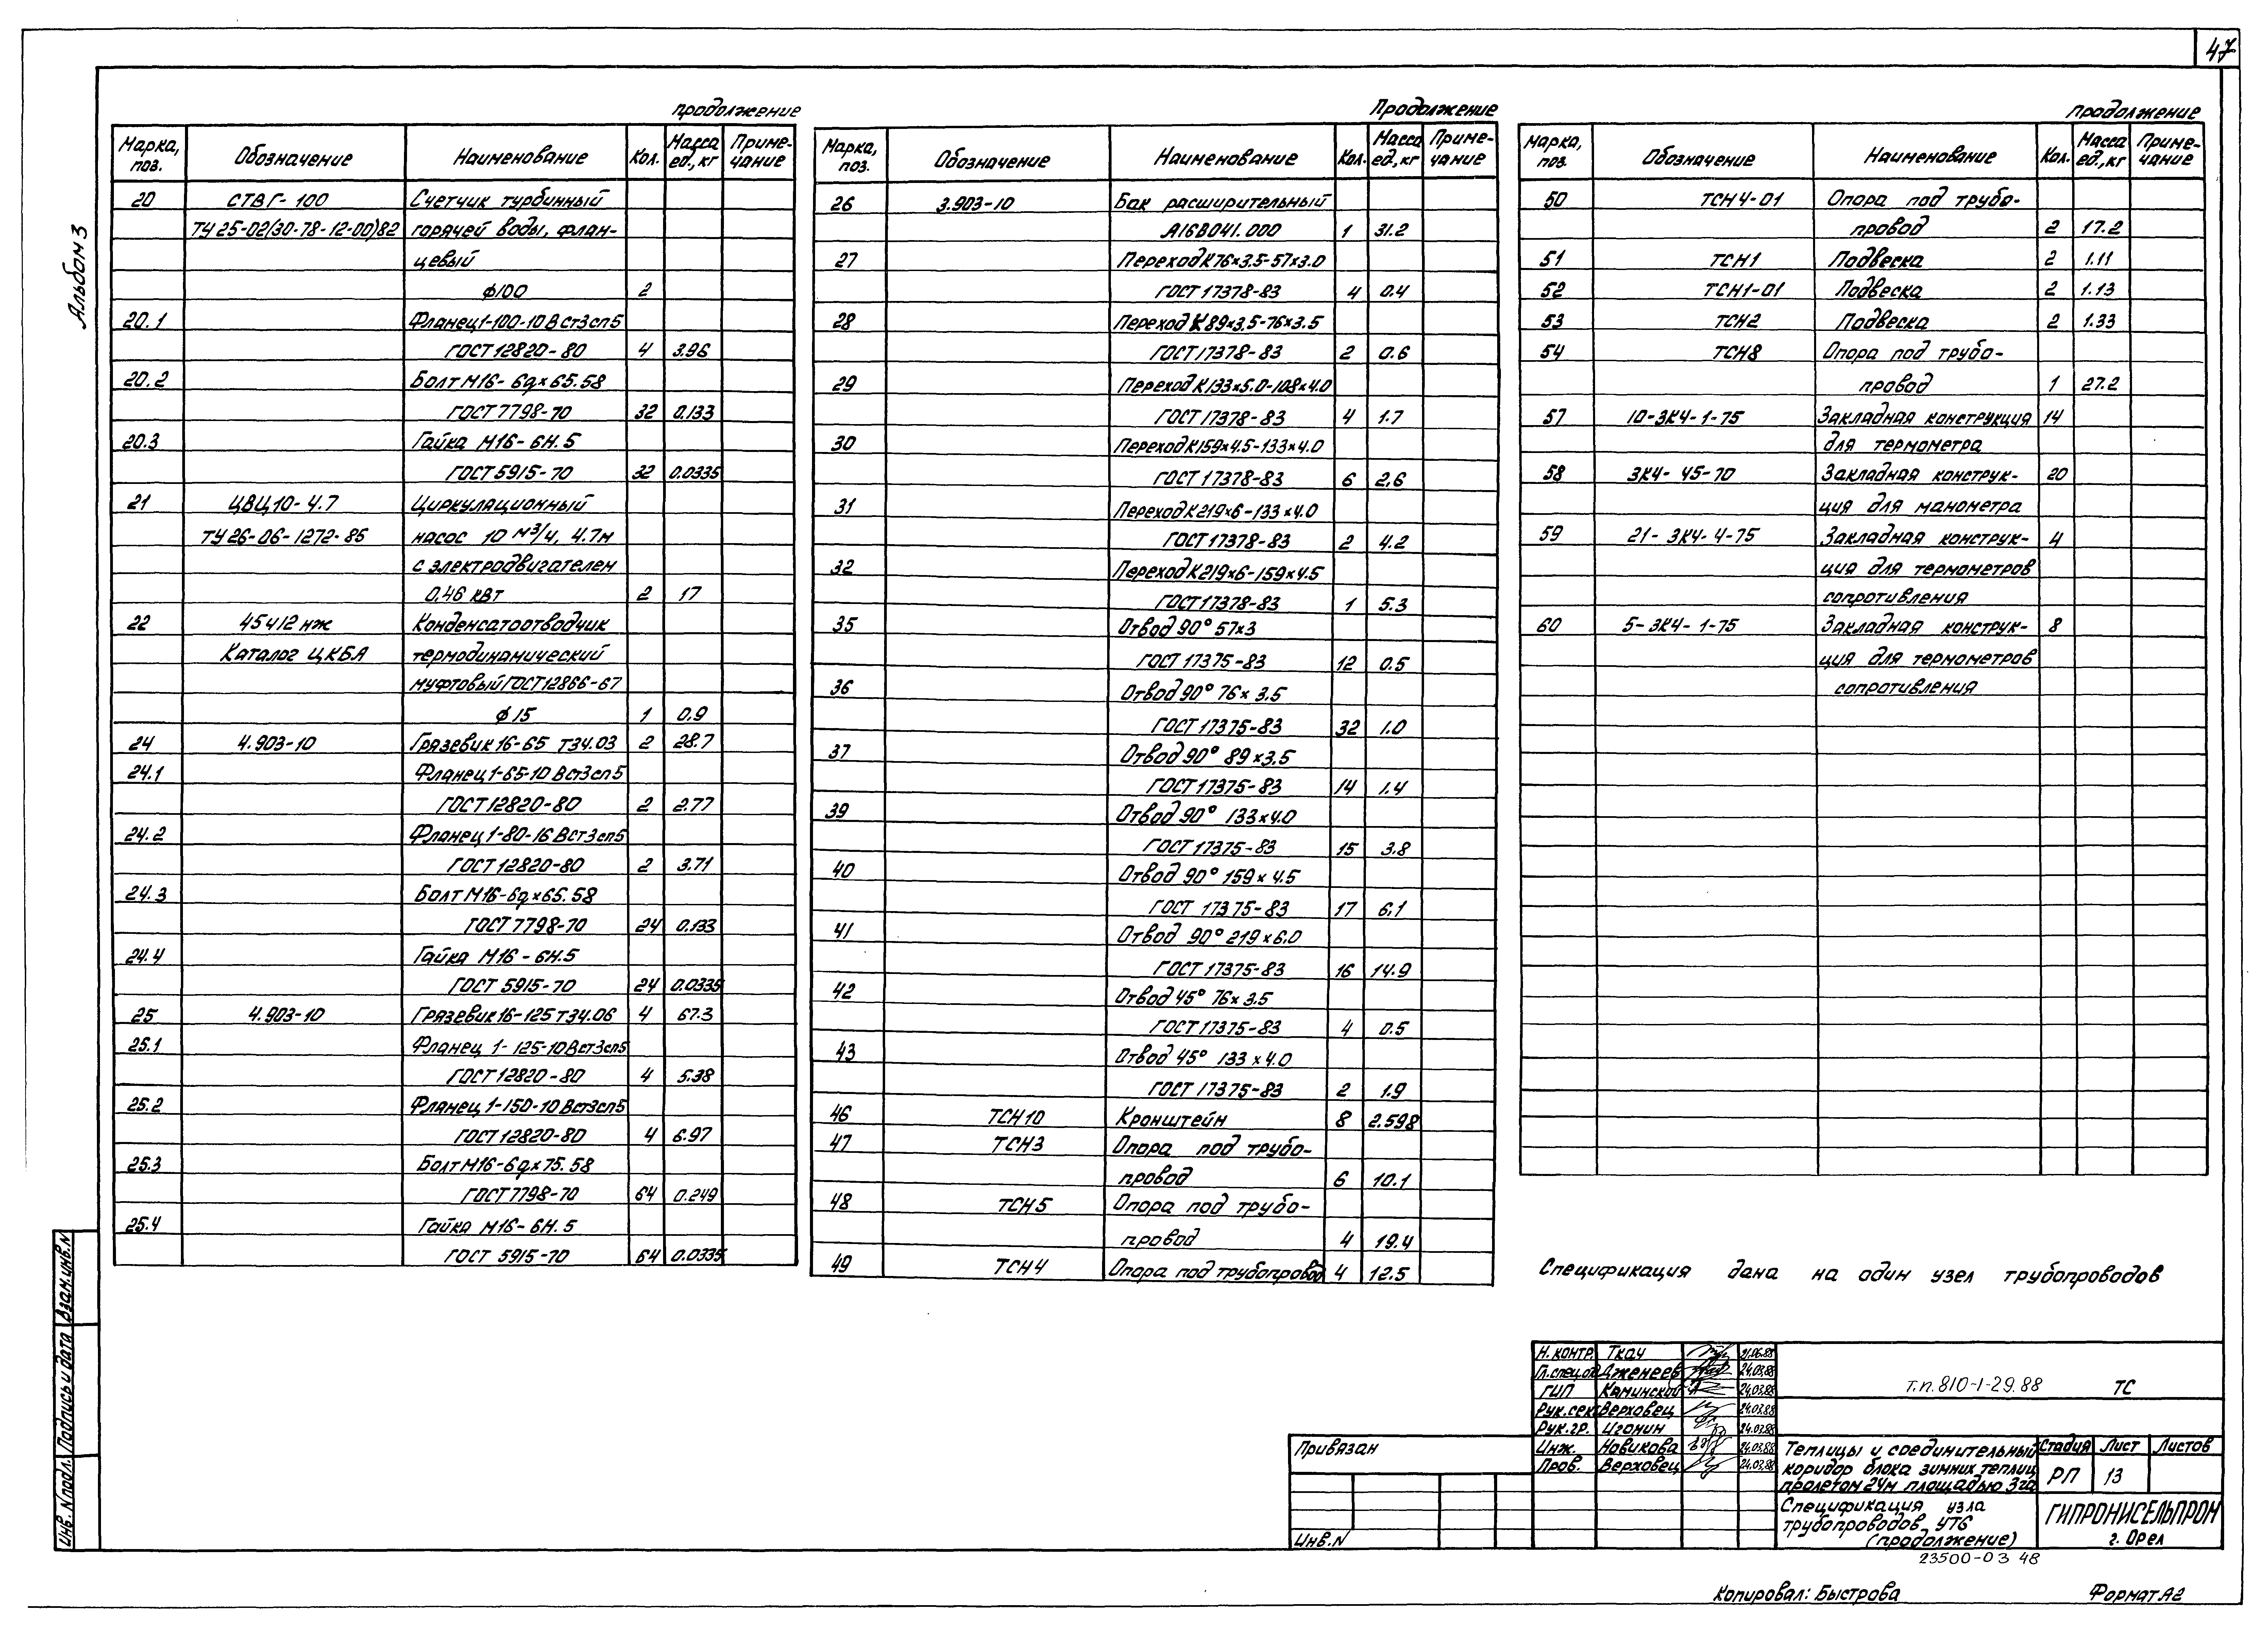 47
Альбом 3
продолжение
Марка, поз. Обозначение Наименование Кол. Масса ед., кг Приме-чание
20 СТВГ-100 Счетчик турбинный
ТУ 25-02(30-78-12-00)82 горячей воды, флан-
цевый
ф100 2
20.1 Фланец 1-100-10 Вст3сп5
ГОСТ 12820-80 4 3.96
20.2 Болт М16-6gx65.58
ГОСТ 7798-70 32 0.133
20.3 Гайка М16-6Н.5
ГОСТ 5915-70 32 0.0335
21 ЦВЦ 10-4.7 Циркуляционный
ТУ 26-06-1272-86 насос 10 м3/ч, 4.7м
с электродвигателем
0,46 квт 2 17
22 45ч12нж Конденсатоотводчик
Каталог ЦКБА термодинамический
муфтовый ГОСТ 12866-67
ф 15 1 0.9
24 4.903-10 Грязевик 16-65 Т34.03 2 28.7
24.1 Фланец 1-65-10 Вст3сп5
ГОСТ 12820-80 2 2.77
24.2 Фланец 1-80-16 Вст3сп5
ГОСТ 12820-80 2 3.71
24.3 Болт М16-6gx65.58
ГОСТ 7798-70 24 0.133
24.4 Гайка М16-6Н.5
ГОСТ 5915-70 24 0.0335
25 4.903-10 Грязевик 16-125 Т34.06 4 67.3
25.1 Фланец 1-125-10 Вст3сп5
ГОСТ 12820-80 4 5.38
25.2 Фланец 1-150-10 Вст3сп5
ГОСТ 12820-80 4 6.97
25.3 Болт М16-6gx75.58
ГОСТ 7798-70 64 0.249
25.4 Гайка М16-6Н.5
ГОСТ 5915-70 64 0.0335
Продолжение
Марка, поз. Обозначение Наименование Кол. Масса ед., кг Приме-чание
26 3.903-10 Бак расширительный
А16В041.000 1 31.2
27 Переход К76х3.5-57х3.0
ГОСТ 17378-83 4 0.4
28 Переход К89х3.5-76х3.5
ГОСТ 17378-83 2 0.6
29 Переход К133х5.0-108х4.0
ГОСТ 17378-83 4 1.7
30 Переход К159х4.5-133х4.0
ГОСТ 17378-83 6 2,6
31 Переход К219х6-133х4.0
ГОСТ 17378-83 2 4.2
32 Переход К219х6-159х4.5
ГОСТ 17378-83 1 5.3
35 Отвод 90° 57х3
ГОСТ 17375-83 12 0.5
36 Отвод 90° 76х3.5
ГОСТ 17375-83 32 1.0
37 Отвод 90° 89х3,5
ГОСТ 17375-83 14 1.4
39 Отвод 90° 133х4.0
ГОСТ 17375-83 15 3.8
40 Отвод 90° 159х4.5
ГОСТ 17375-83 17 6,1
41 Отвод 90° 219х6.0
ГОСТ 17375-83 16 14.9
42 Отвод 45° 76х3.5
ГОСТ 17375-83 4 0.5
43 Отвод 45° 133х4.0
ГОСТ 17375-83 2 1.9
46 ТСН10 Кронштейн 8 2.598
47 ТСН3 Опора под трубо-
провод 6 10.1
48 ТСН5 Опора под трубо-
провод 4 19.4
49 ТСН4 Опора под трубопровод 4 12.5
продолжение
Марка, поз. Обозначение Наименование Кол. Масса ед., кг Приме-чание
50 ТСН4-01 Опора под трубо-
провод 2 17.2
51 ТСН1 Подвеска 2 1.11
52 ТСН1-01 Подвеска 2 1.13
53 ТСН2 Подвеска 2 1.33
54 ТСН8 Опора под трубо-
провод 1 27.2
57 10-ЗК4-1-75 Закладная конструкция 14
для термометра
58 ЗК4-45-70 Закладная конструк- 20
ция для манометра
59 21-ЗК4-4-75 Закладная конструк- 4
ция для термометров
сопротивления
60 5-ЗК4-1-75 Закладная конструк- 8
ция для термометров
сопротивления
Спецификация дана на один узел трубопроводов
Взам.инв.N
Подпись и дата
Инв.N подл.
Привязан
Инв.N
Н.контр. Ткач 21.06.88
Гл.спец.от Дженеев 24.03.88
ГИП Каминский 24.03.88
Рук.сек Верховец 24.03.88
Рук.гр. Игонин 24.03.88
Инж. Новикова 24.03.88
Пров. Верховец 24.03.88
т.п. 810-1-29.88 ТС
Теплицы и соединительный
коридор блока зимних теплиц
пролетом 24м площадью 3га
Стадия Лист Листов
РП 13
Спецификация узла
трубопроводов УТ6
(продолжение)
ГИПРОНИСЕЛЬПРОМ
г. Орел
23500-03 48
Копировал: Быстрова
Формат А2